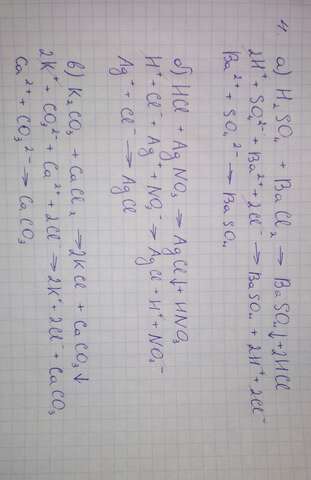 4. а) H₂SO₄ + BaCl₂ → BaSO₄↓ + 2HCl
2H⁺ + SO₄²⁻ + Ba²⁺ + 2Cl⁻ → BaSO₄ + 2H⁺ + 2Cl⁻
Ba²⁺ + SO₄²⁻ → BaSO₄
б) HCl + AgNO₃ → AgCl↓ + HNO₃
H⁺ + Cl⁻ + Ag⁺ + NO₃⁻ → AgCl + H⁺ + NO₃⁻
Ag⁺ + Cl⁻ → AgCl
в) K₂CO₃ + CaCl₂ → 2KCl + CaCO₃↓
2K⁺ + CO₃²⁻ + Ca²⁺ + 2Cl⁻ → 2K⁺ + 2Cl⁻ + CaCO₃
Ca²⁺ + CO₃²⁻ → CaCO₃